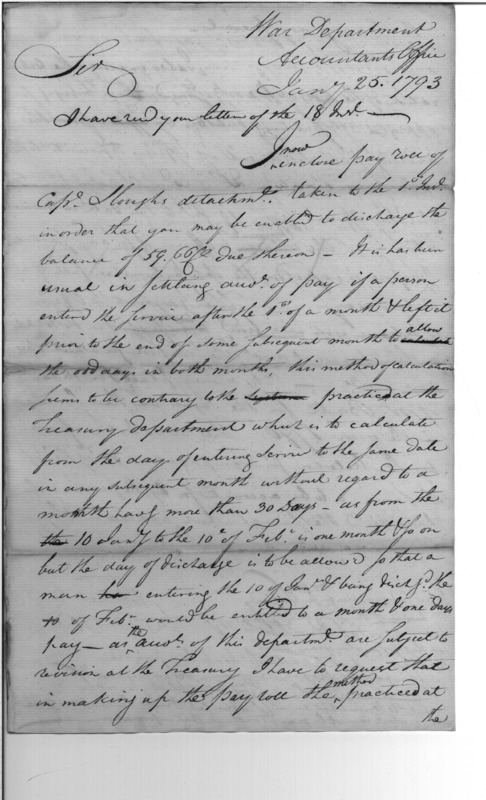 War Department
Accountants Office
Sir Jany 25. 1793
I have recd your letter of the 18 Inst.
I now enclose pay roll of
Capt. Sloughs detachmt. taken to the 1st Inst.
in order that you may be enabled to discharge the
balance of 59. 66 due thereon - It has been
usual in settling accots. of pay if a person
enterd the service after the 1st of a month & left it
prior to the end of some subsequent month to allow
the odd days in both months, this method of calculation
seems to be contrary to the practiced at the
Treasury department which is to calculate
from the day of entering Service to the same date
in any subsequent month without regard to a
month havg more than 30 Days - as from the
the 10 Jany to the 10th of Feby. is one month & so on
but the day of discharge is to be allow'd so that a
man entering the 10 of Jany & being dischgd. the
10 of Feby. would be entitled to a month & one days
pay - as the accots. of this departmt. are subject to
revision at the Treasury I have to request that
in making up the pay roll the method practiced at
the